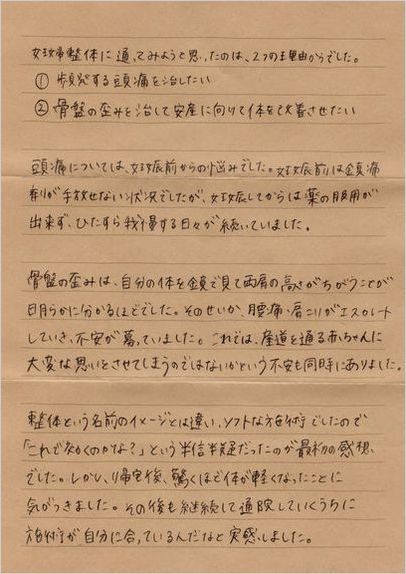 妊婦整体に通ってみようと思ったのは、2つの理由からでした。
① 頻発する頭痛を治したい
② 骨盤の歪みを治して安産に向けて体を改善させたい
頭痛については、妊娠前からの悩みでした。妊娠前は鎮痛
剤が手放せない状況でしたが、妊娠してからは薬の服用が
出来ず、ひたすら我慢する日々が続いていました。
骨盤の歪みは、自分の体を鏡で見て両肩の高さがちがうことが
明らかに分かるほどでした。そのせいか、腰痛・肩こりがエスカレート
していき、不安が募っていました。これでは、産道を通る赤ちゃんに
大変な思いをさせてしまうのではないかという不安も同時にありました。
整体という名前のイメージとは違い、ソフトな施術でしたので
「これで効くのかな?」という半信半疑だったのが最初の感想
でした。しかし、帰宅後、驚くほど体が軽くなったことに
気がつきました。その後も継続して通院していくうちに
施術が自分に合っているんだなと実感しました。